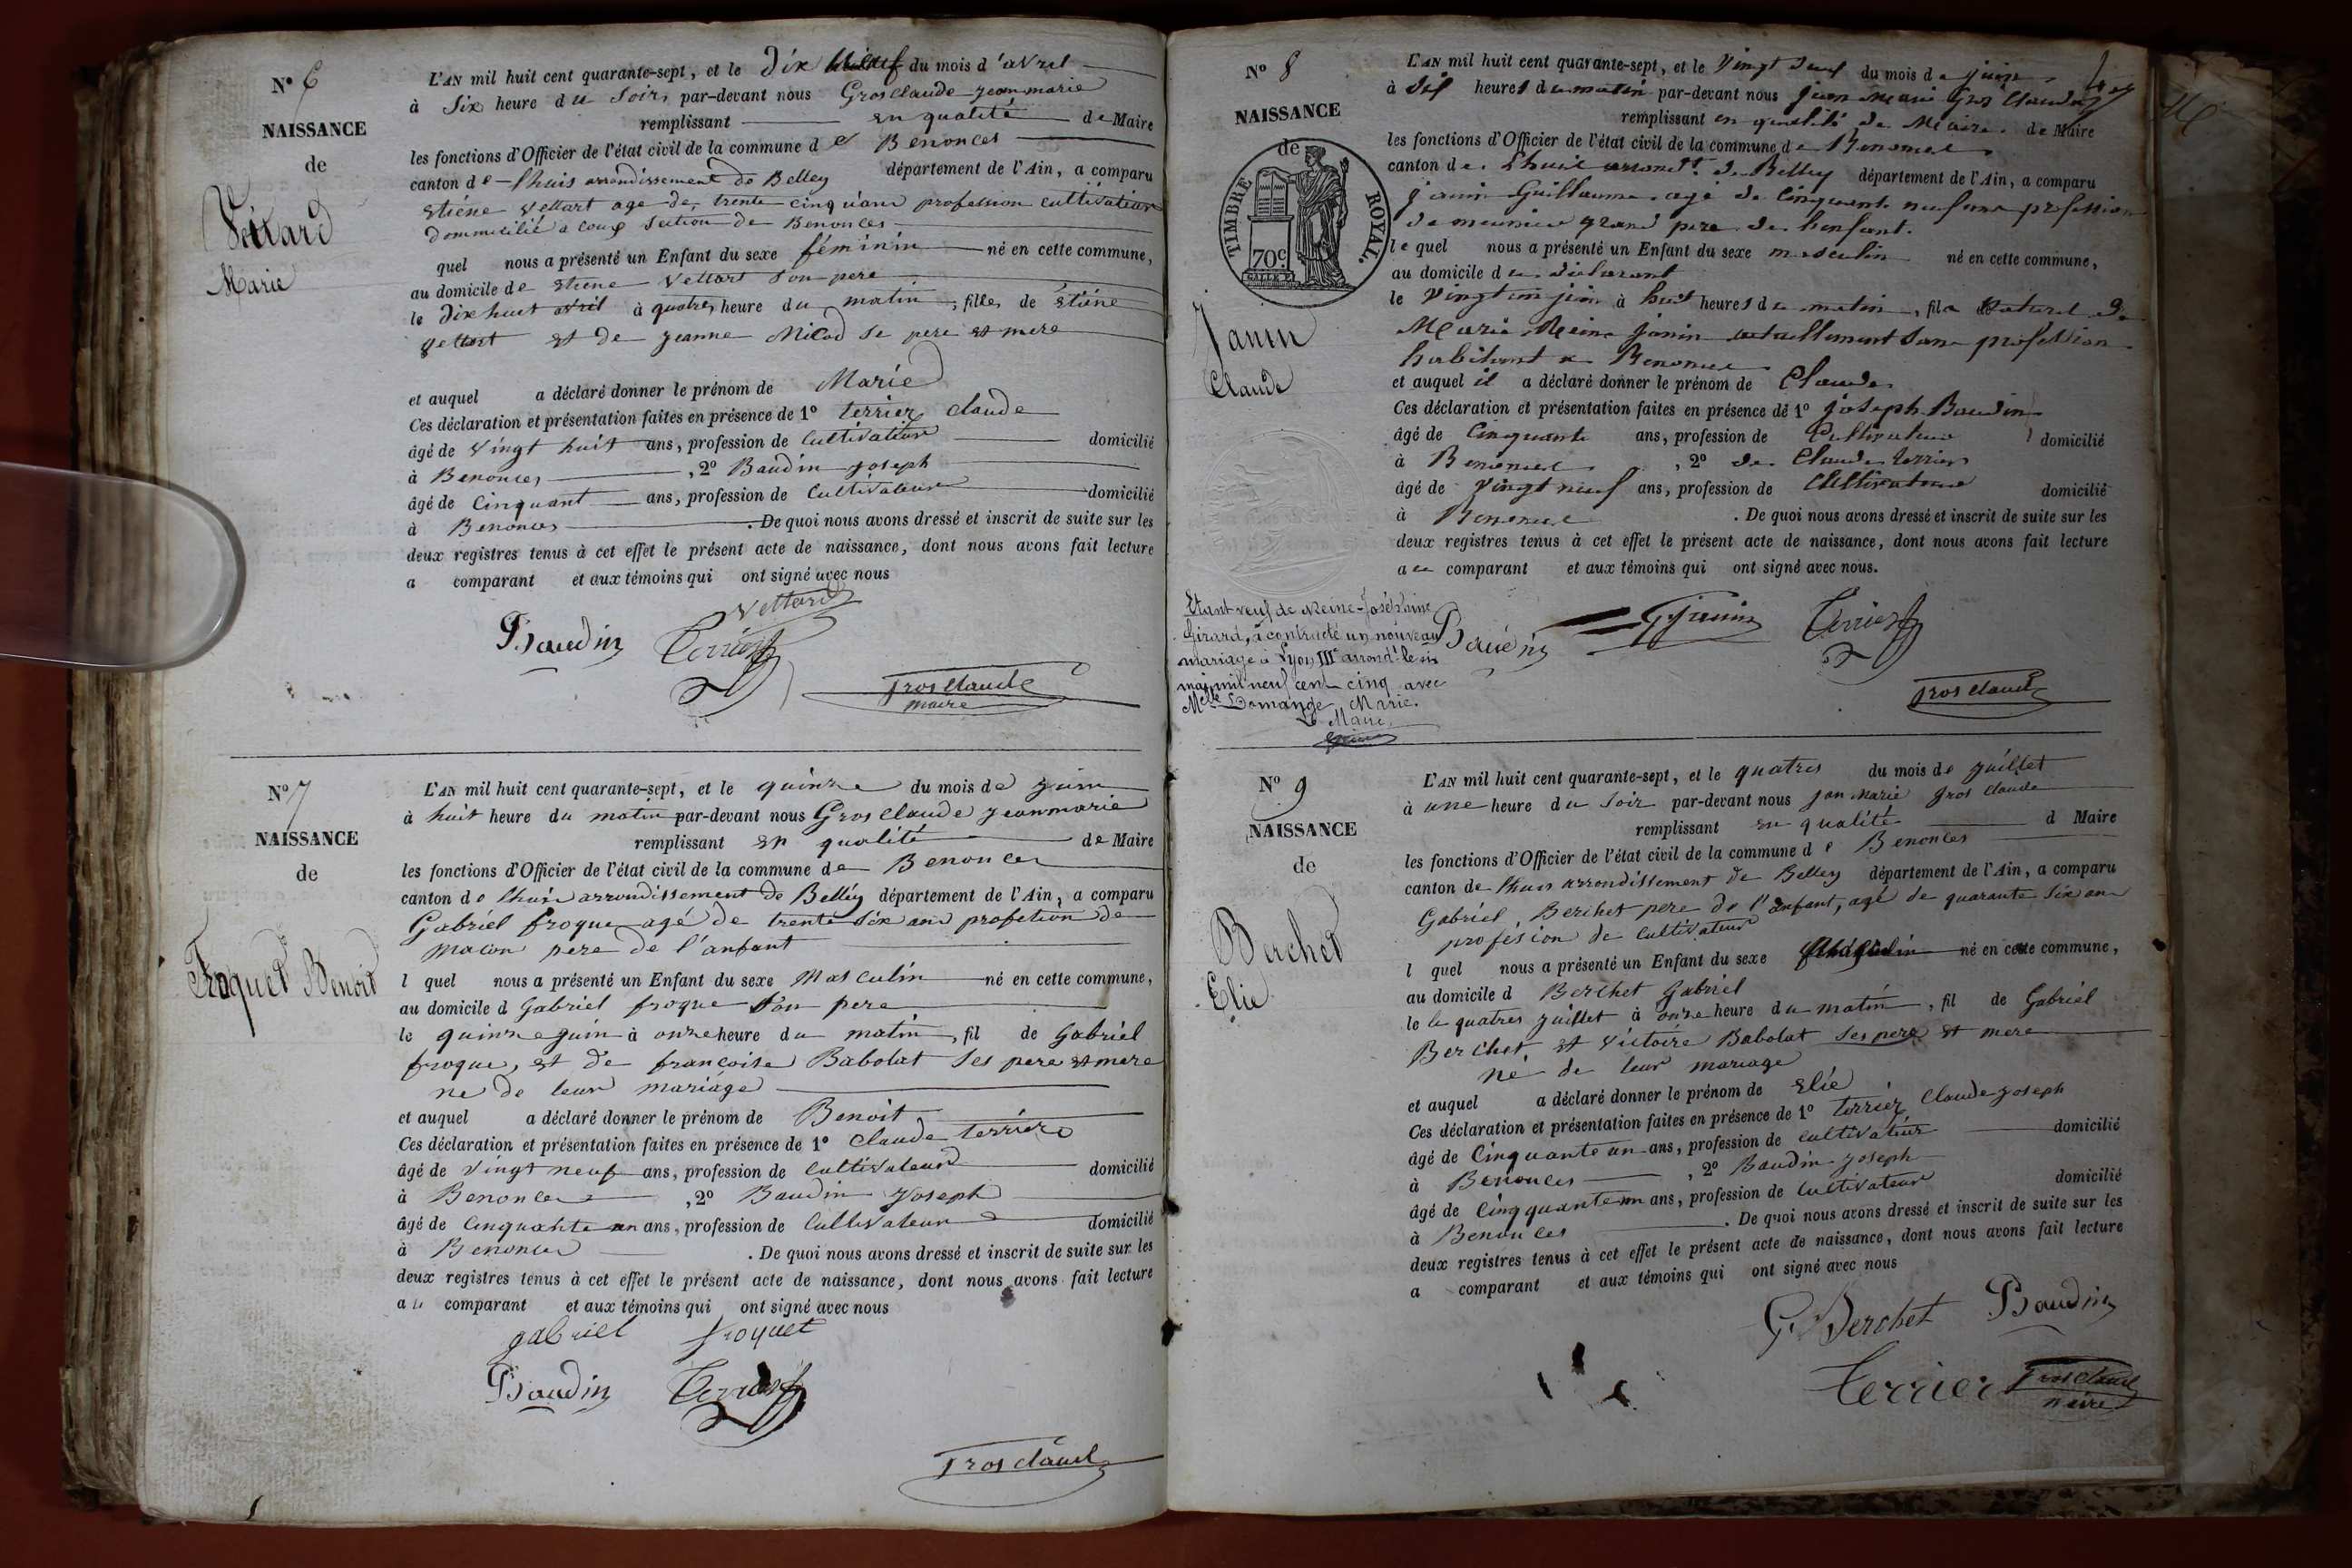 N° 6
NAISSANCE
de
Vettard
Marie
L'AN mil huit cent quarante-sept, et le dix neuf du mois d'avril
à Six heure du Soir, par-devant nous Grosclaude jeanmarie
remplissant en qualité de Maire
les fonctions d'Officier de l'état civil de la commune de Benonces
canton de lhuis arrondissement de Belley département de l'Ain, a comparu
Etiéne Vettart age de trente cinq ans profession cultivateur
dommicilié a Benonces
quel nous a présenté un Enfant du sexe féminin né en cette commune,
au domicile de etiene Vettart Son pere
le dix huit avril à quatre heure du matin, fille de étiéne
Vettart et de jeanne se pere et mere
et auquel a déclaré donner le prénom de Marie
Ces déclaration et présentation faites en présence de 1° terrier claude
âgé de Vingt huit ans, profession de Cultivateur domicilié
à Benonces, 2° Baudin joseph
âgé de Cinquant ans, profession de Cultivateur domicilié
à Benonces. De quoi nous avons dressé et inscrit de suite sur les
deux registres tenus à cet effet le présent acte de naissance, dont nous avons fait lecture
a comparant et aux témoins qui ont signé avec nous
Vettard
Baudin Terrier
Grosclaude
maire
N° 7
NAISSANCE
de
Froquet Benoit
L'AN mil huit cent quarante-sept, et le quinze du mois de juin
à huit heure du matin par-devant nous Grosclaude jeanmarie
remplissant en qualité de Maire
les fonctions d'Officier de l'état civil de la commune de Benonces
canton de lhuis arrondissement de Belley département de l'Ain, a comparu
Gabriel froque agé de trente six ans profetion de
macon pere de l'anfant
l quel nous a présenté un Enfant du sexe Masculin né en cette commune,
au domicile d Gabriel froque Son pere
le quinze juin à onze heure du matin, fil de Gabriel
froque, et de francoise Babolat Ses pere et mere
ne de leur mariage
et auquel a déclaré donner le prénom de Benoit
Ces déclaration et présentation faites en présence de 1° Claude terrier
âgé de Vingt neuf ans, profession de Cultivateur domicilié
à Benonces, 2° Baudin Joseph
âgé de Cinquante un ans, profession de Cultivateur domicilié
à Benonces. De quoi nous avons dressé et inscrit de suite sur les
deux registres tenus à cet effet le présent acte de naissance, dont nous avons fait lecture
au comparant et aux témoins qui ont signé avec nous
gabriel froquet
Baudin Terrier
Grosclaude
N° 8
NAISSANCE
de
TIMBRE ROYAL.
70c
Janin
Claude
L'AN mil huit cent quarante-sept, et le Vingt deux du mois de juin
à dix heures du matin par-devant nous Jean Marie Gros Claude
remplissant en qualité de Maire de Maire
les fonctions d'Officier de l'état civil de la commune de Benonces
canton de Lhuis arrondt. de Belley département de l'Ain, a comparu
janin Guillaume agé de Cinquante neuf ans profession
de meunier grand pere de lenfant.
lequel nous a présenté un Enfant du sexe masculin né en cette commune,
au domicile du déclarant
le Vingt un juin à huit heures du matin, fils naturel de
Marie Reine janin actuellement Sans profession
habitant a Benonces
et auquel il a déclaré donner le prénom de Claude
Ces déclaration et présentation faites en présence de 1° joseph Baudin
âgé de Cinquante ans, profession de Cultivateur domicilié
à Benonces, 2° de Claude terrier
âgé de Vingt neuf ans, profession de Cultivateur domicilié
à Benonces. De quoi nous avons dressé et inscrit de suite sur les
deux registres tenus à cet effet le présent acte de naissance, dont nous avons fait lecture
au comparant et aux témoins qui ont signé avec nous.
Etant veuf de Reine-Joséphine
Girard, a contracté un nouveau
mariage à Lyon IIIe arrondt. le six
mai mil neuf cent cinq avec
Melle Domange Marie.
Le Maire,
Baudin G Janin Terrier
Grosclaude
N° 9
NAISSANCE
de
Berchet
Elie
L'AN mil huit cent quarante-sept, et le quatres du mois de juillet
à une heure du Soir par-devant nous jan marie gros claude
remplissant en qualité d Maire
les fonctions d'Officier de l'état civil de la commune de Benonces
canton de lhuis arrondissement de Belley département de l'Ain, a comparu
Gabriel, Berchet pere de l'anfant, agé de quarante six an
profésion de Cultivateur
l quel nous a présenté un Enfant du sexe masculin né en cette commune,
au domicile d Berchet Gabriel
le le quatres juillet à onze heure du matin, fil de Gabriel
Berchet et Victoire Babolat ses pere et mere
né de leur mariage
et auquel a déclaré donner le prénom de Elie
Ces déclaration et présentation faites en présence de 1° terrier Claude joseph
âgé de Cinquante un ans, profession de Cultivateur domicilié
à Benonces, 2° Baudin joseph
âgé de Cinqquante un ans, profession de Cultivateur domicilié
à Benonces. De quoi nous avons dressé et inscrit de suite sur les
deux registres tenus à cet effet le présent acte de naissance, dont nous avons fait lecture
a comparant et aux témoins qui ont signé avec nous
G. Berchet Baudin
terrier Grosclaude
maire